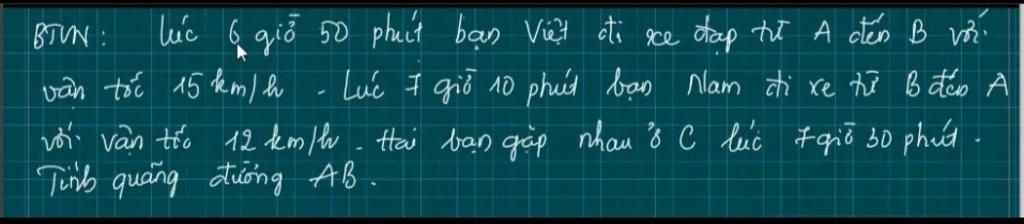 BTVN: Lúc 6 giờ 50 phút bạn Việt đi xe đạp từ A đến B với
vận tốc 15 km/h. Lúc 7 giờ 10 phút bạn Nam đi xe từ B đến A
với vận tốc 12 km/h. Hai bạn gặp nhau ở C lúc 7 giờ 30 phút.
Tính quãng đường AB.